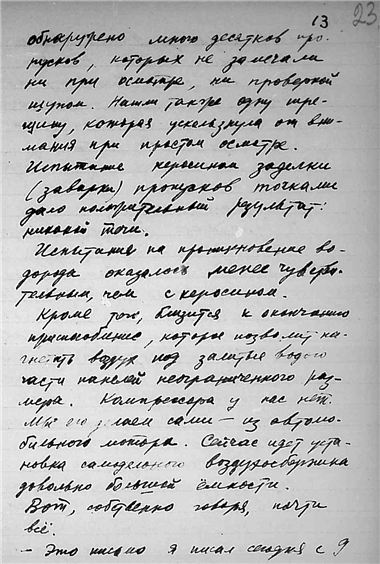 13
23
обнаружено много десятков про-
пусков, которых не замечали
ни при осмотре, ни проверкой
щупом. Нашли также одну тре-
щину, которая ускользнула от вни-
мания при простом осмотре.
Испытание керосином заделки
(заварки) пропусков точками
дало положительный результат:
никакой течи.
Испытания на проникновение во-
дорода оказалось менее чувстви-
тельным, чем с керосином.
Кроме того, близится к окончанию
приспособление, которое позволит на-
гнетать воздух под залитые водою
части панелей неограниченного раз-
мера. Компрессора у нас нет.
Мы его делаем сами — из автомо-
бильного мотора. Сейчас идет уста-
новка самодельного воздухосборника
довольно большой ёмкости.
Вот, собственно говоря, почти
всё.
— Это письмо я писал сегодня с 9